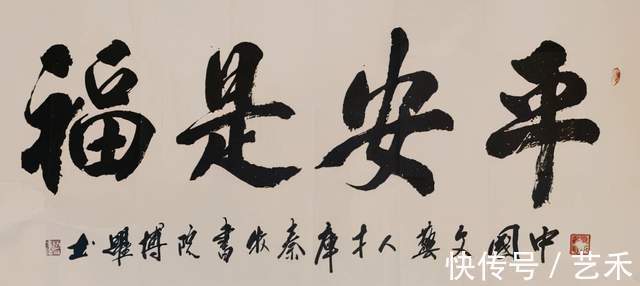 平安是福
中國文藝人才庫秦牧書院博
快传号 / 艺禾